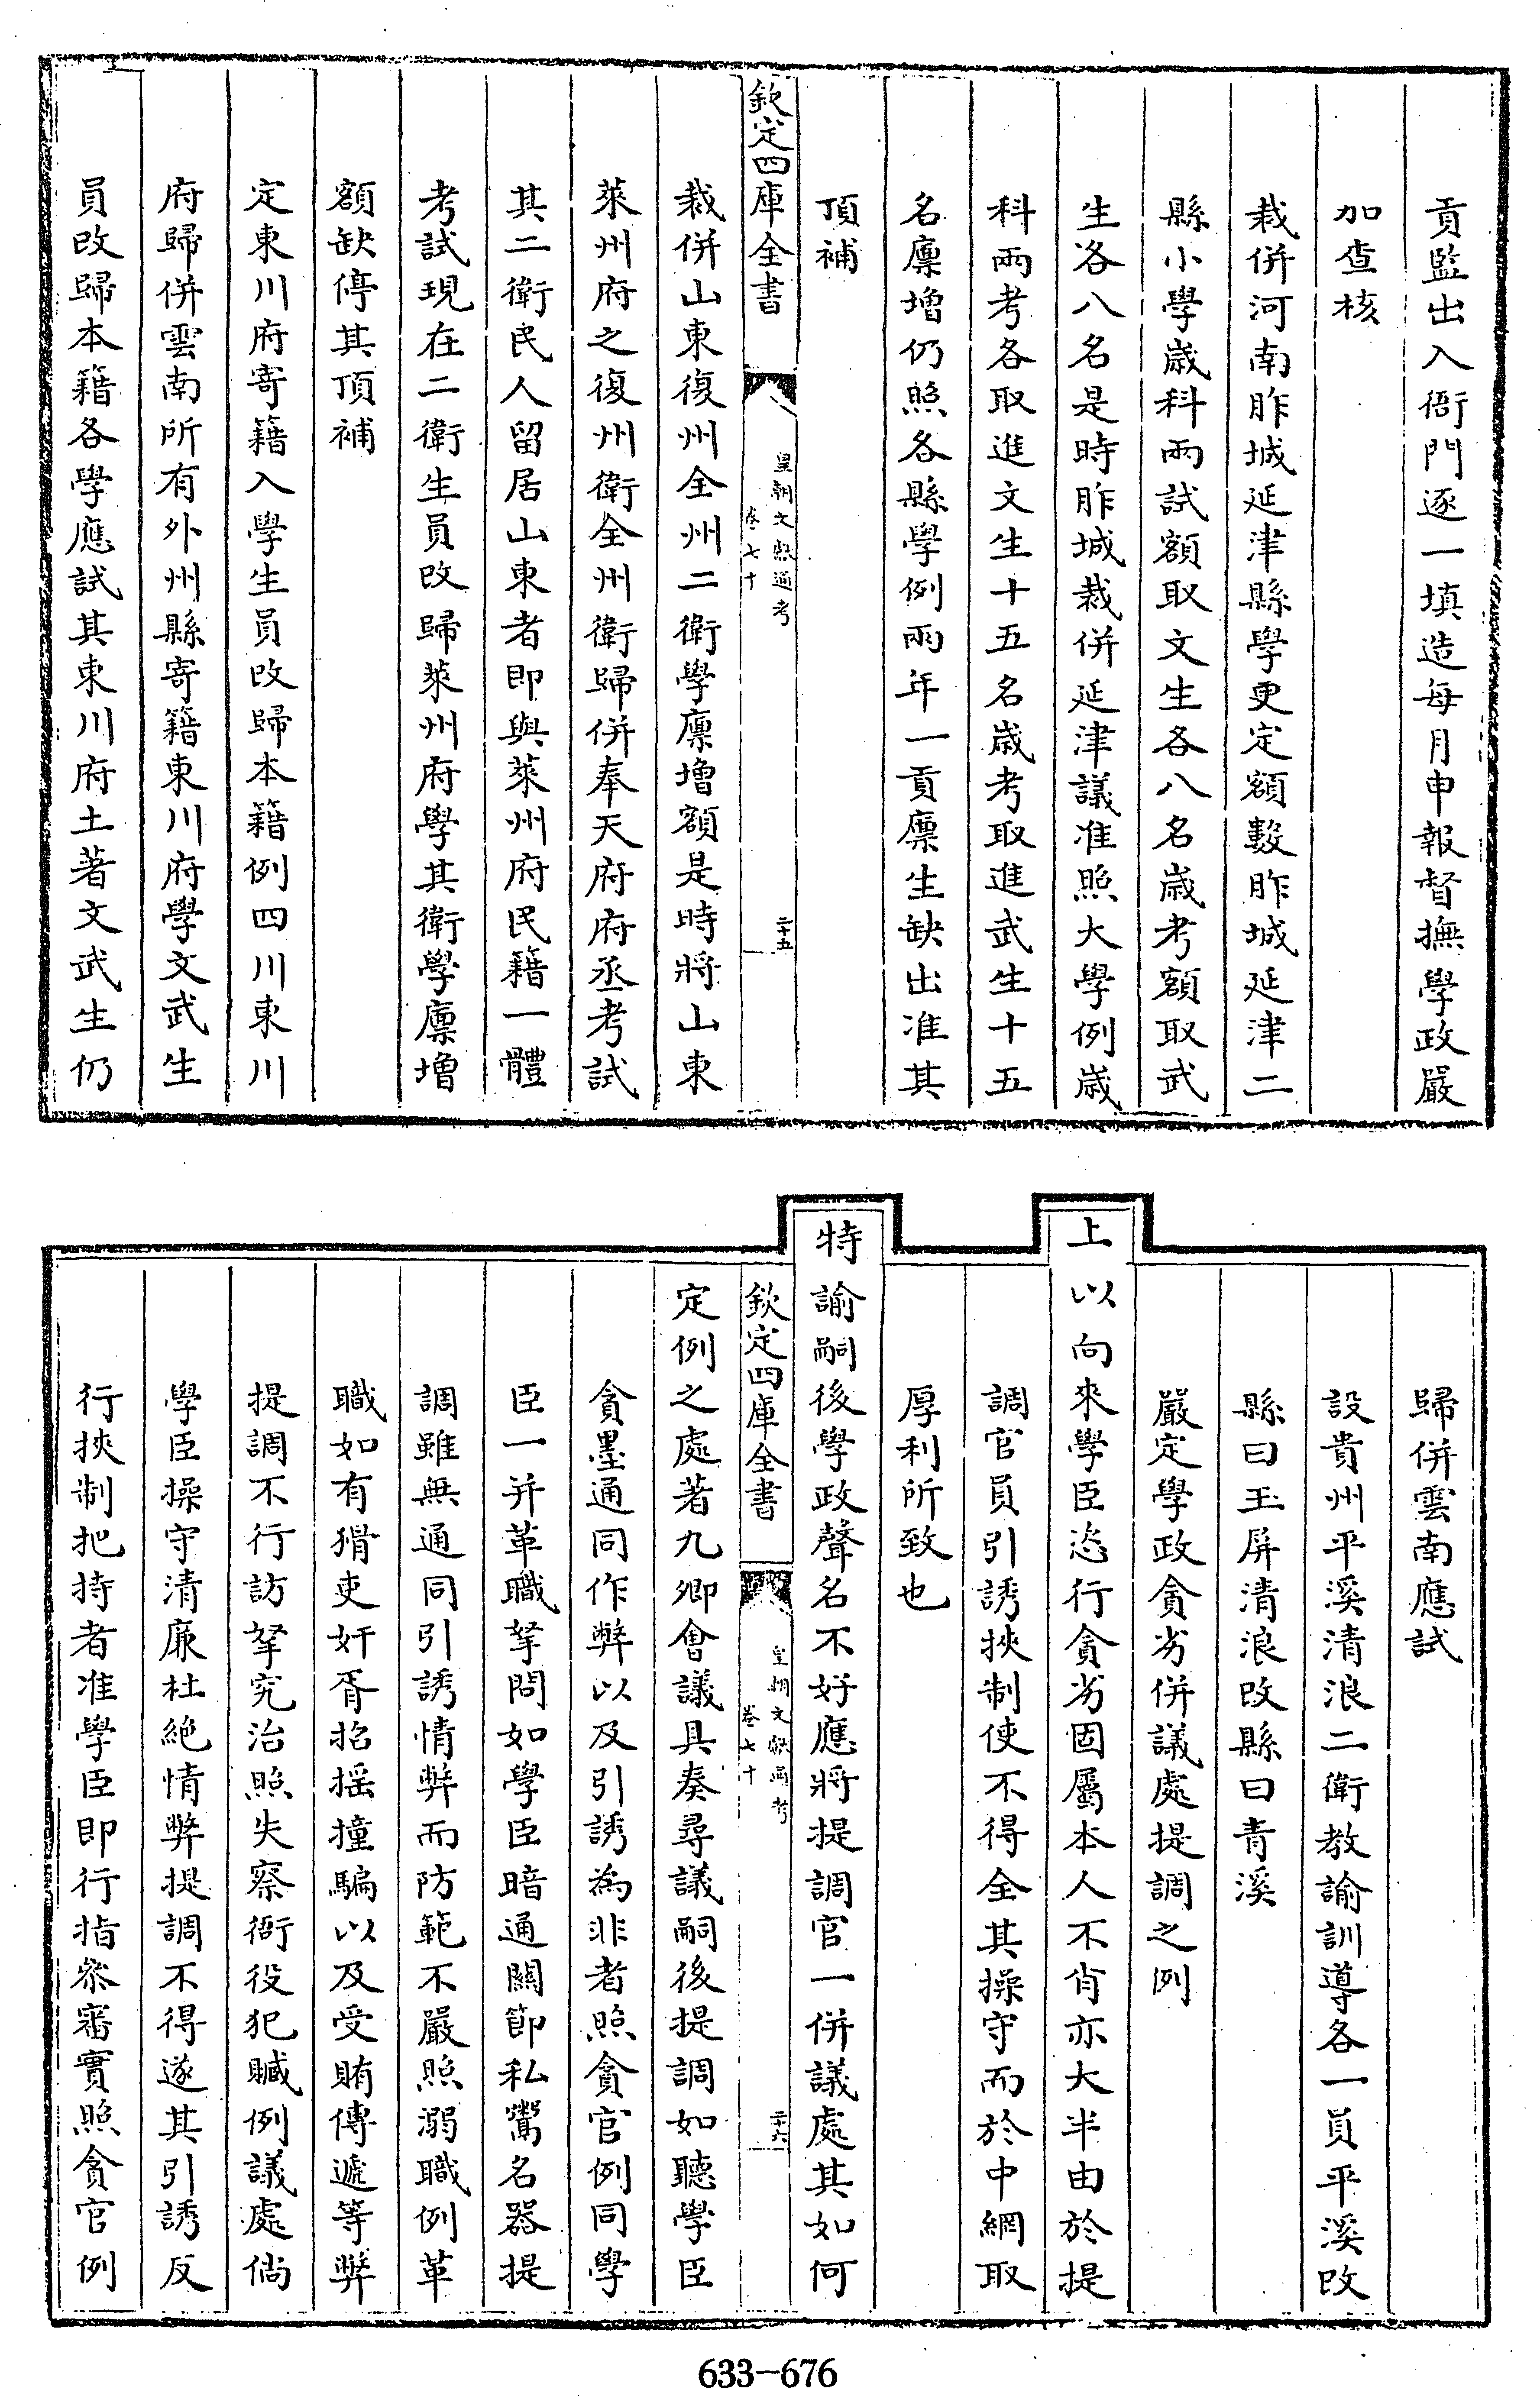 貢監出入衙門逐一填造每月申報督撫學政嚴
加查核
裁併河南胙城延津縣學更定額數胙城延津二
縣小學歲科兩試額取文生各八名歲考額取武
生各八名是時胙城裁併延津議准照大學例歲
科兩考各取進文生十五名歲考取進武生十五
名廪增仍照各縣學例兩年一貢廪生缺出准其
頂補
欽定四庫全書
皇朝文獻通考
卷七十
二十五
裁併山東復州全州二衛學廪增額是時將山東
萊州府之復州衛全州衛歸併奉天府府丞考試
其二衛民人留居山東者即與萊州府民籍一體
考試現在二衛生員改歸萊州府學其衛學廪增
額缺停其頂補
定東川府寄籍入學生員改歸本籍例四川東川
府歸併雲南所有外州縣寄籍東川府學文武生
員改歸本籍各學應試其東川府土著文武生仍
歸併雲南應試
設貴州平溪清浪二衛教諭訓導各一員平溪改
縣曰玉屏清浪改縣曰青溪
嚴定學政貪劣併議處提調之例
上以向來學臣恣行貪劣固屬本人不肖亦大半由於提
調官員引誘挾制使不得全其操守而於中網取
厚利所致也
特諭嗣後學政聲名不好應將提調官一併議處其如何
欽定四庫全書
皇朝文獻通考
卷七十
二十六
定例之處著九卿會議具奏尋議嗣後提調如聽學臣
貪墨通同作弊以及引誘為非者照貪官例同學
臣一并革職拏問如學臣暗通關節私鬻名器提
調雖無通同引誘情弊而防範不嚴照溺職例革
職如有猾吏奸胥招搖撞騙以及受賄傳遞等弊
提調不行訪拏究治照失察衙役犯贓例議處倘
學臣操守清廉杜絕情弊提調不得遂其引誘反
行挾制把持者准學臣即行指叅審實照貪官例
633-676